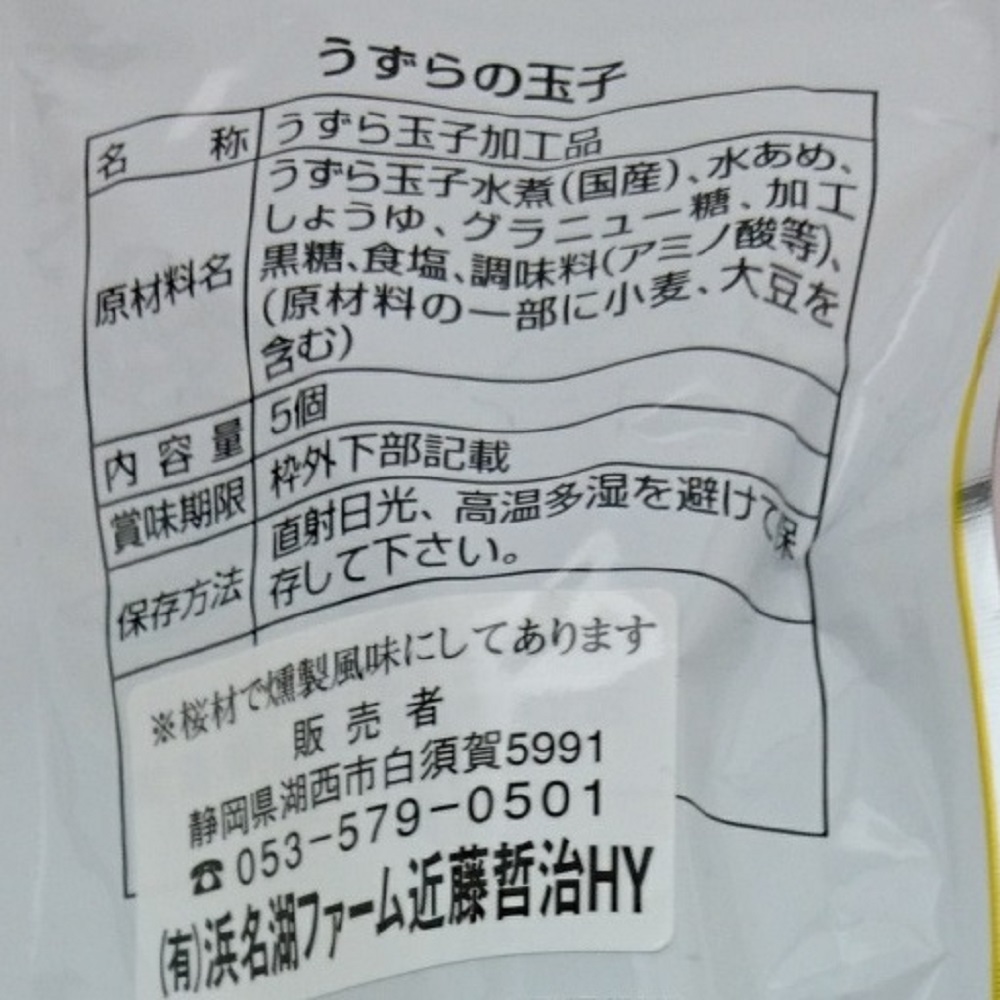 うずらの玉子
名 称 うずら玉子加工品
原材料名 うずら玉子水煮(国産)、水あめ、
しょうゆ、グラニュー糖、加工
黒糖、食塩、調味料(アミノ酸等)、
(原材料の一部に小麦、大豆を
含む)
内容量 5個
賞味期限 枠外下部記載
保存方法 直射日光、高温多湿を避けて保
存して下さい。
※桜材で燻製風味にしてあります
販売者
静岡県湖西市白須賀5991
☎053-579-0501
(有)浜名湖ファーム近藤哲治HY